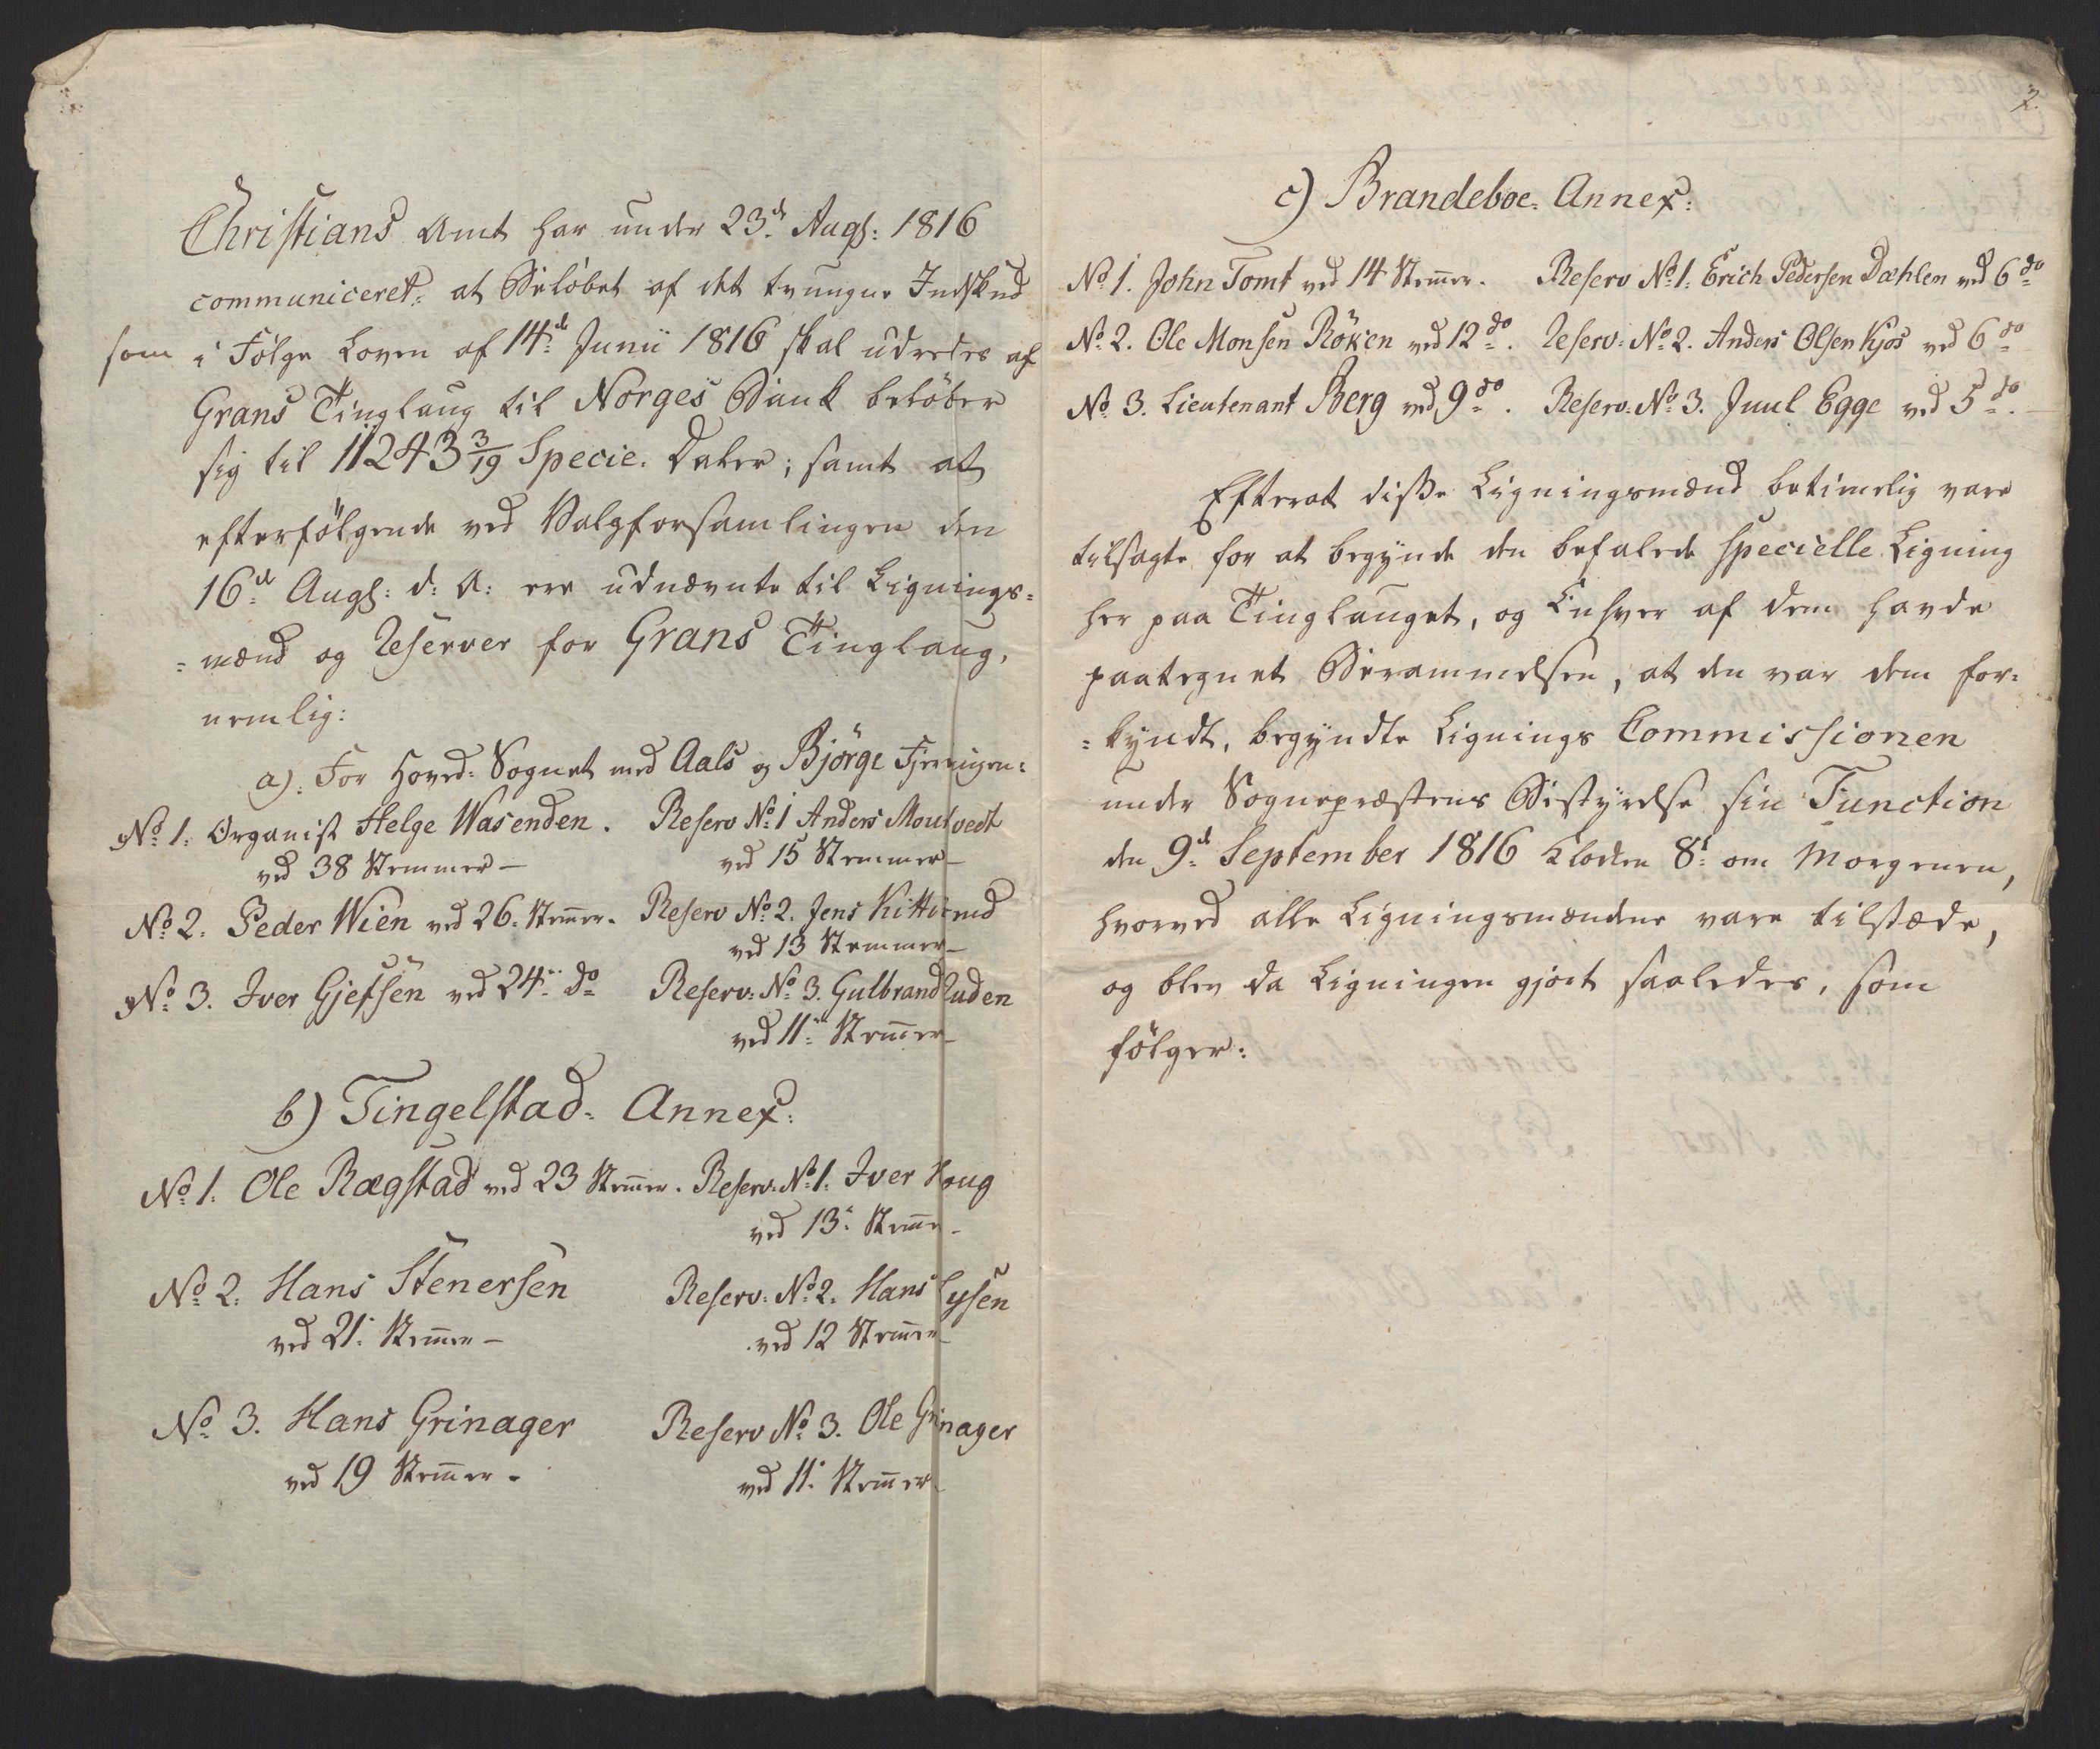 Christians Amt har under 23de Augs: 1816
communiceret: at Beløbet af det tvungne Indskud
som i Følge Loven af 14de Junii 1816 skal udredes af
Grans Tinglaug til Norges Bank beløber
sig til 11243 3/19 Specie. Daler; samt at
efterfölgende ved Valgforsamlingen den
16de Augs: d: A: ere udnævnte til Lignings=
=mænd og Reserver for Grans Tinglaug,
nemlig:
a). For Hoved: Sognet med Aals og Björge Fjerringen:
No 1. Organist Helge Wasenden. Reserv No 1 Anders Moutvedt
ved 38 Stemmer — ved 15 Stemmer —
No 2. Peder Wien ved 26. Stemer. Reserv No 2. Jens Kittirud
ved 13 Stemmer —
No 3. Iver Gjefsen ved 24: do Reserv: No 3. Gulbrand Luden
ved 11: Stemer —
b) Tingelstad: Annex:
No 1. Ole Rægstad ved 23 Stemer. Reserv: No 1. Iver Houg
ved 13: Steme —
No 2. Hans Stenersen Reserv: No 2. Hans Lysen
ved 21: Stemer — ved 12 Stemer —
No 3. Hans Grinager Reserv No 3. Ole Grinager
ved 19 Stemer. ved 11: Stemer
2.
c) Brandeboe: Annex:
No 1. John Tomt ved 14 Stemer. Reserv No 1: Erich Pedersen Dæhlen ved 6 do
No 2. Ole Monsen Röken ved 12 do. Reserv: No 2. Anders Olsen Kjos ved 6 do
No 3. Lieutenant Berg ved 9 do. Reserv: No 3. Juul Egge ved 5 do.
Efterat disse Ligningsmænd betimelig vare
tilsagte for at begynde den befalede specielle Ligning
her paa Tinglauget, og Enhver af dem havde
paategnet Berammelsen, at den var dem for=
=kyndt, begyndte Lignings Commissionen
under Sognepræstens Bestyrelse sin Function
den 9de September 1816 Klokken 8t om Morgenen,
hvorved alle Ligningsmændene vare tilstæde,
og blev da Ligningen gjort saaledes, som
fölger: